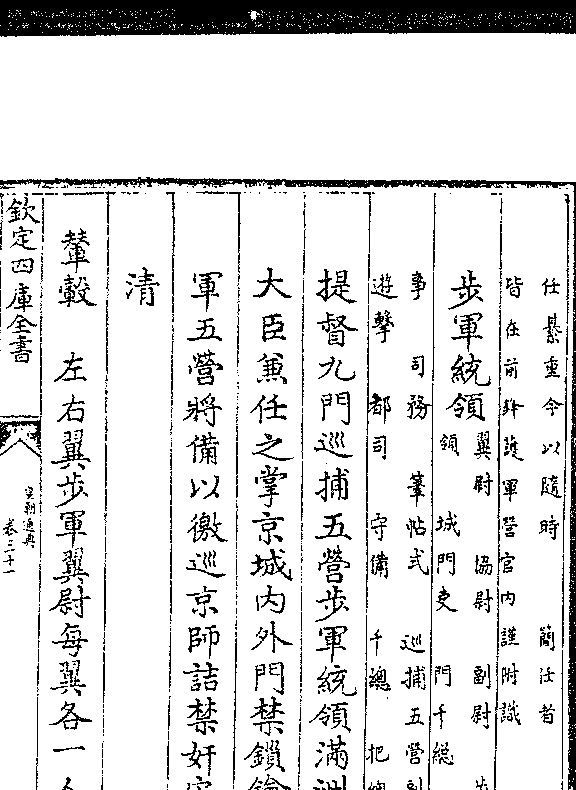 任綦重今以隨時　簡任者
皆在前鋒護軍營官內謹附識
步軍統領
翼尉　協尉　副尉
領　城門吏　門千總
事　司務　筆帖式　巡捕五營副
遊擊　都司　守備　千總　把總
提督九門巡捕五營步軍統領滿洲
大臣兼任之掌京城內外門禁鎖鑰
軍五營將備以徼巡京師詰禁奸宄
清
輦轂　左右翼步軍翼尉每翼各一人
欽定四庫全書
皇朝通典
卷三十一